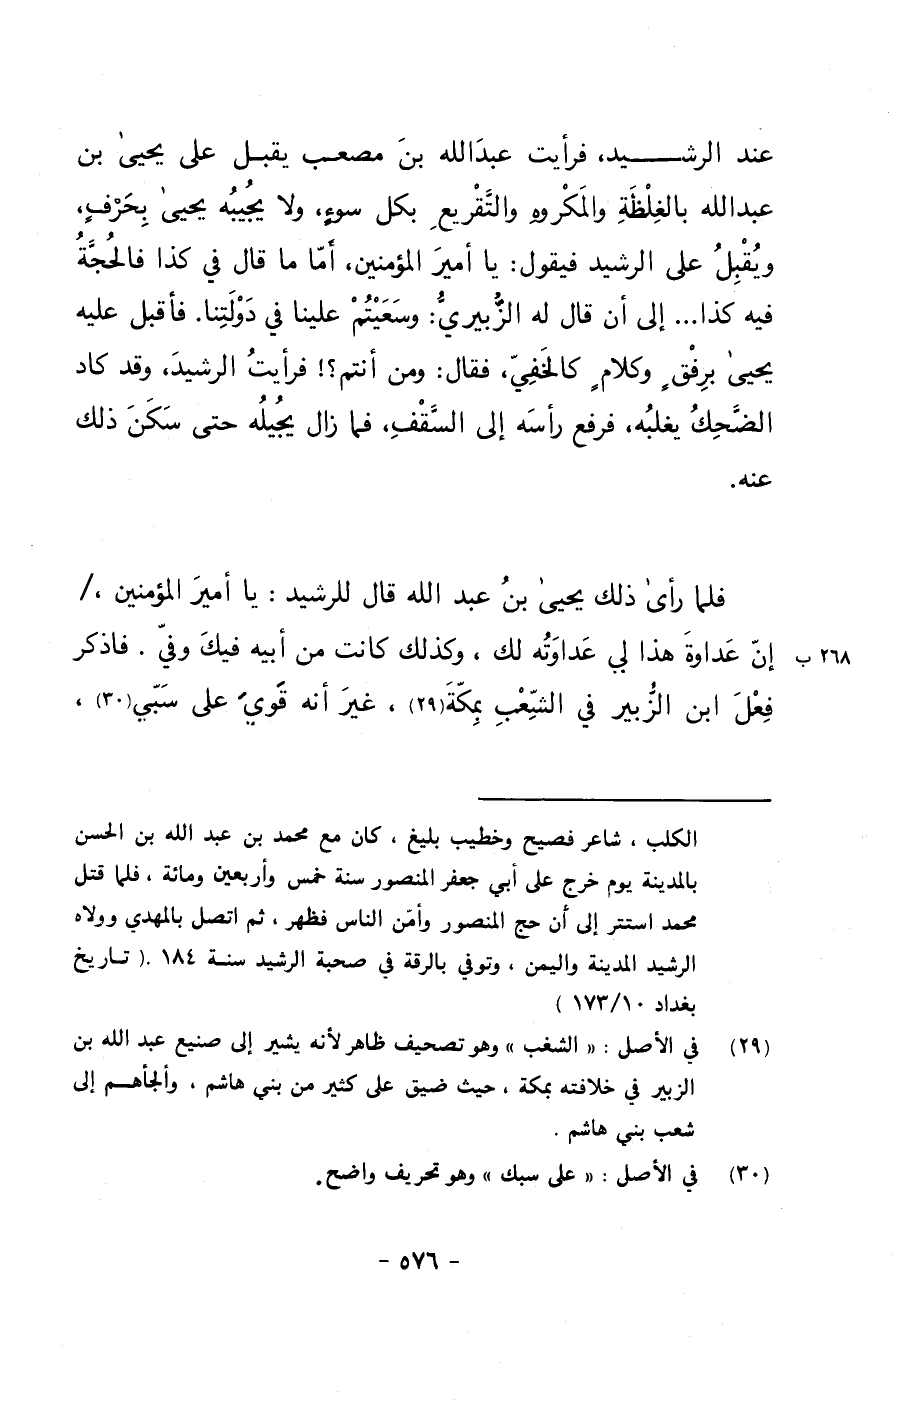 عند الرشـــــيد، فرأيت عبدَالله بنَ مصعـب يقبـل على يحيىٰ بن
عبدالله بالغِلْظَةِ والمَكْروهِ والتَّقْريعِ بكل سوءٍ، ولا يُجيبُه يحيىٰ بِحَرْفٍ،
ويُقْبِلُ على الرشيد فيقول: يا أميرَ المؤمنين، أَمّا ما قال في كذا فالحُجَّةُ
فيه كذا... إلى أن قال له الزُّبيريُّ: وسَعَيْتُمْ علينا في دَوْلَتِنا. فأقبل عليه
يحيىٰ برِفْقٍ وكلامٍ كالخَفِيّ، فقال: ومن أنتم؟! فرأيتُ الرشيدَ، وقد كاد
الضَّحِكُ يغلبُه، فرفع رأسَه إلى السَّقْفِ، فما زال يُجيلُه حتى سَكَنَ ذلك
عنه.
فلما رأىٰ ذلك يحيىٰ بنُ عبد الله قال للرشيد : يا أميرَ المؤمنين ،/
٢٦٨ ب إنّ عَداوةَ هذا لي عَداوَتُه لك ، وكذلك كانت من أبيه فيكَ وفيّ . فاذكر
فِعْلَ ابن الزُّبير في الشِّعْبِ بمكّةَ(٢٩) ، غيرَ أنه قَوِيَ على سَبّي(٣٠) ،
الكلب ، شاعر فصيح وخطيب بليغ ، كان مع محمد بن عبد الله بن الحسن
بالمدينة يوم خرج على أبي جعفر المنصور سنة خمس وأربعين ومائة ، فلما قتل
محمد استتر إلى أن حج المنصور وأمّن الناس فظهر ، ثم اتصل بالمهدي وولاه
الرشيد المدينة واليمن ، وتوفي بالرقة في صحبة الرشيد سنـة ١٨٤ .( تـاريخ
بغداد ١٧٣/١٠ )
(٢٩) في الأصل : « الشغب » وهو تصحيف ظاهر لأنه يشير إلى صنيع عبد الله بن
الزبير في خلافته بمكة ، حيث ضيق على كثير من بني هاشم ، وألجأهـم إلى
شعب بني هاشم .
(٣٠) في الأصل : « على سبك » وهو تحريف واضح.
- ٥٧٦ -